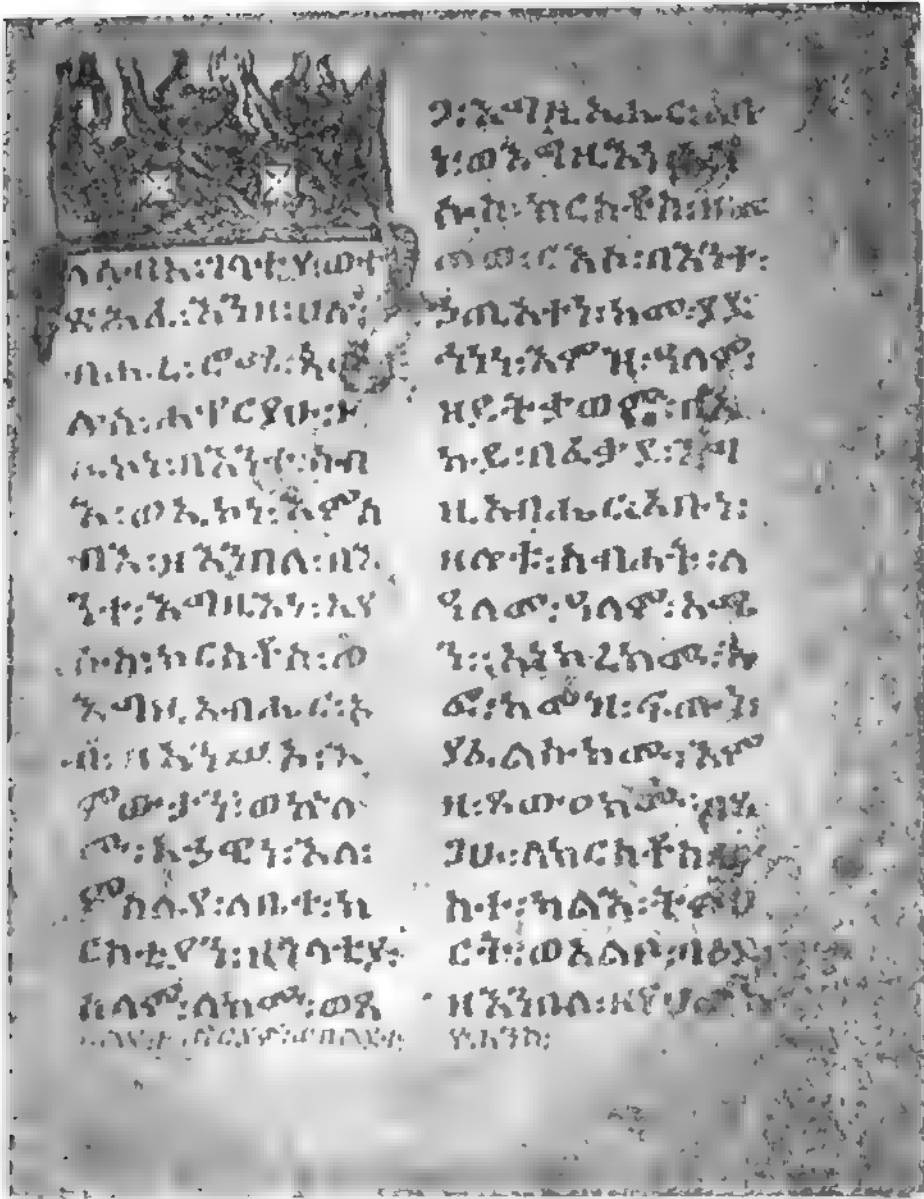 ለሰብአ፡ገላትያ፡ወተ
ጽሕፈ፡እንዘ፡ሀሎ፡
ብሔረ፡ሮሜ፡ጳው
ሎስ፡ሐዋርያሁ፡ዘ
ኢኮነ፡በእንተ፡ሰብ
እ፡ወኢኮነ፡እምሰ
ብእ፡ዘእንበለ፡በእ
ንተ፡እግዚእነ፡ኢየ
ሱስ፡ክርስቶስ፡ወ
እግዚአብሔር፡አ
ብ፡ዘአንሥኦ፡እ
ምውታን፡ወኵሎ
ሙ፡አኃዊነ፡እለ፡
ምስሌየ፡ለቤተ፡ክ
ርስቲያን፡ዘገላትያ፡
ሰላም፡ለክሙ፡ወጸ
ጋ፡እግዚአብሔር፡አቡ
ነ፡ወእግዚእነ፡ኢየ
ሱስ፡ክርስቶስ፡ዘመ
ጠወ፡ርእሶ፡በእንተ፡
ኃጢአተነ፡ከመ፡ያድ
ኅነነ፡እምዝ፡ዓለም፡
ዘይትቃወም፡በእ
ኩይ፡በፈቃደ፡እግ
ዚአብሔር፡አቡነ፡
ዘሎቱ፡ስብሐት፡ለ
ዓለመ፡ዓለም፡አሜ
ን፡፡አነክረክሙ፡እ
ፎ፡ከመዝ፡ፍጡነ፡
ያፈልሱክሙ፡እም
ዘ፡ጸውዐክሙ፡በጸ
ጋሁ፡ለክርስቶስ፡ው
ስተ፡ካልእ፡ትምህ
ርት፡ወአልቦ፡ባዕድ፡
ዘእንበለ፡